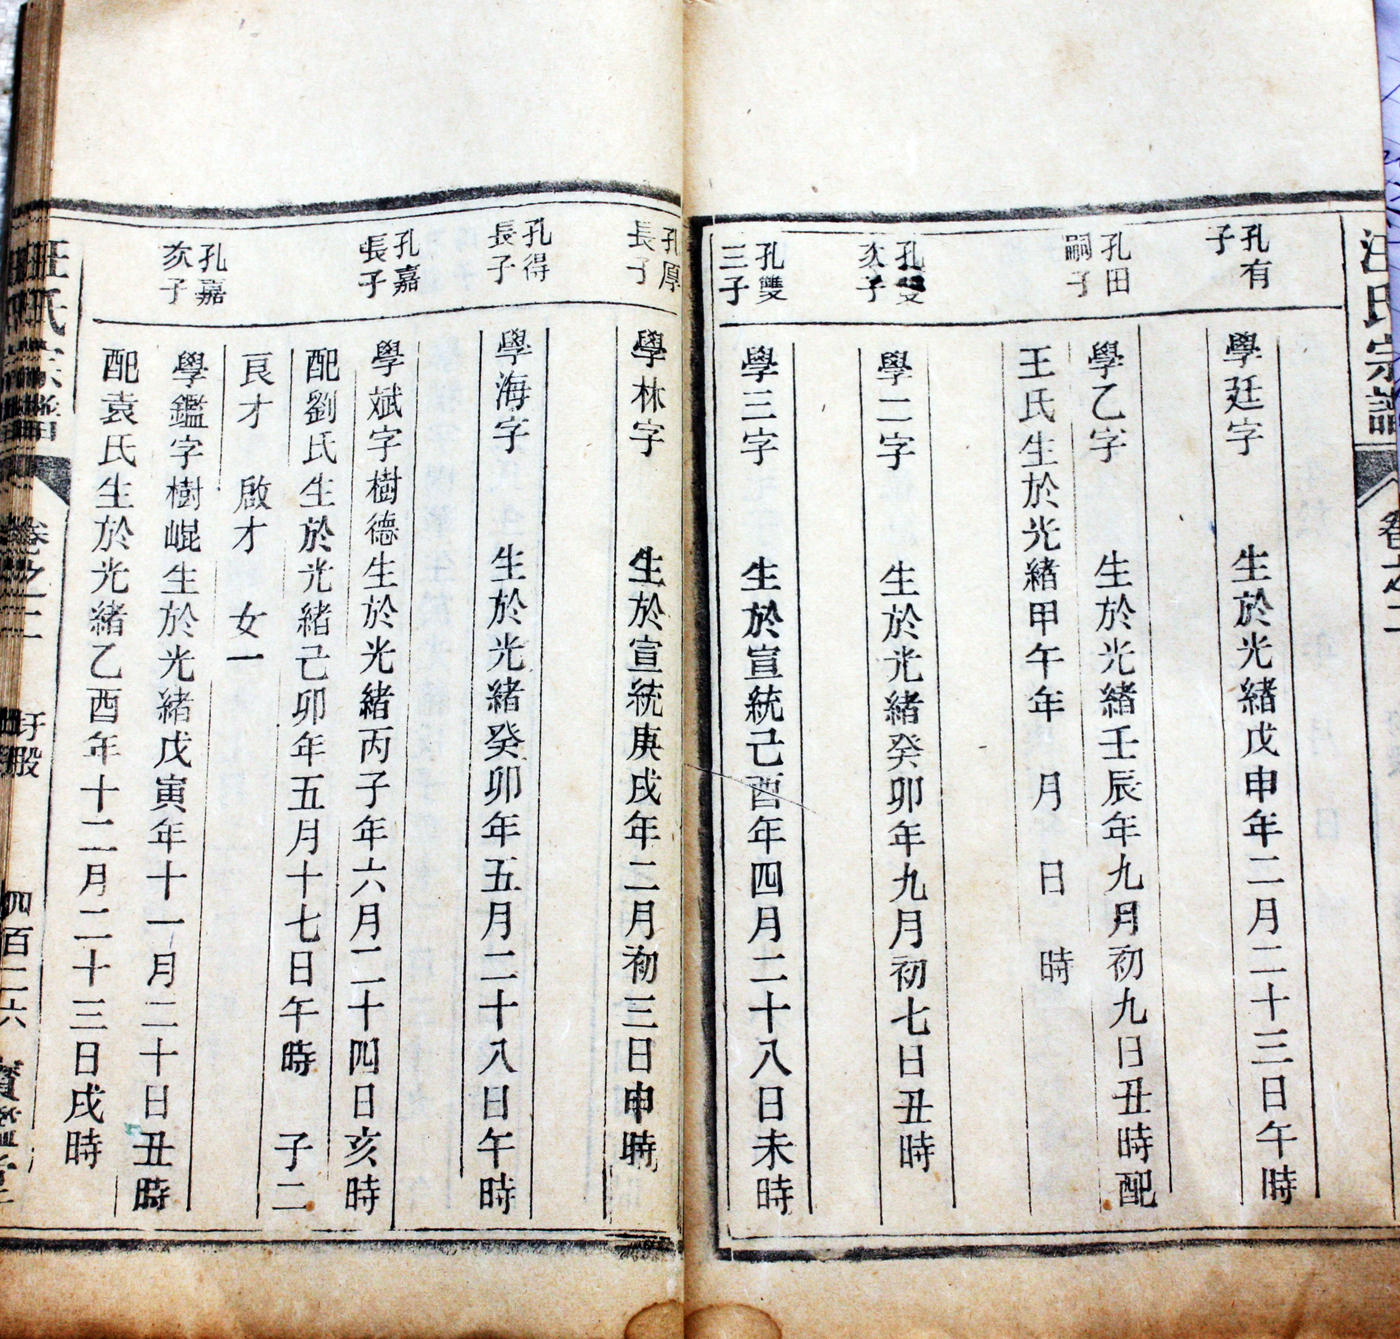 汪氏宗譜
卷之二
孔有
子
學廷字 生於光緒戊申年二月二十三日午時
孔田
嗣子
學乙字 生於光緒壬辰年九月初九日丑時配
王氏生於光緒甲午年 月 日 時
孔雙
次子
學二字 生於光緒癸卯年九月初七日丑時
孔雙
三子
學三字 生於宣統己酉年四月二十八日未時
孔厚
長子
學林字 生於宣統庚戌年二月初三日申時
孔得
長子
學海字 生於光緒癸卯年五月二十八日午時
孔嘉
長子
學斌字樹德生於光緒丙子年六月二十四日亥時
配劉氏生於光緒己卯年五月十七日午時 子二
良才 啟才 女一
孔嘉
次子
學鑑字樹崐生於光緒戊寅年十一月二十日丑時
配袁氏生於光緒乙酉年十二月二十三日戌時
汪氏宗譜
卷之二
四百二六